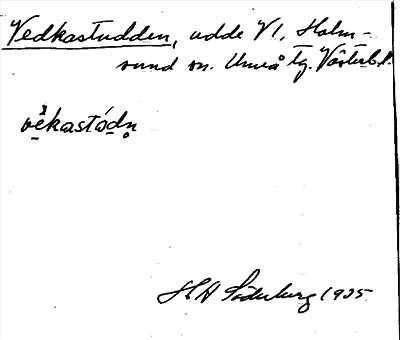 Vedkastudden, udde VI, Holm-
sund sn. Umeå tg. Västerb.l.
vèkastǿdn
H Söderberg 1935